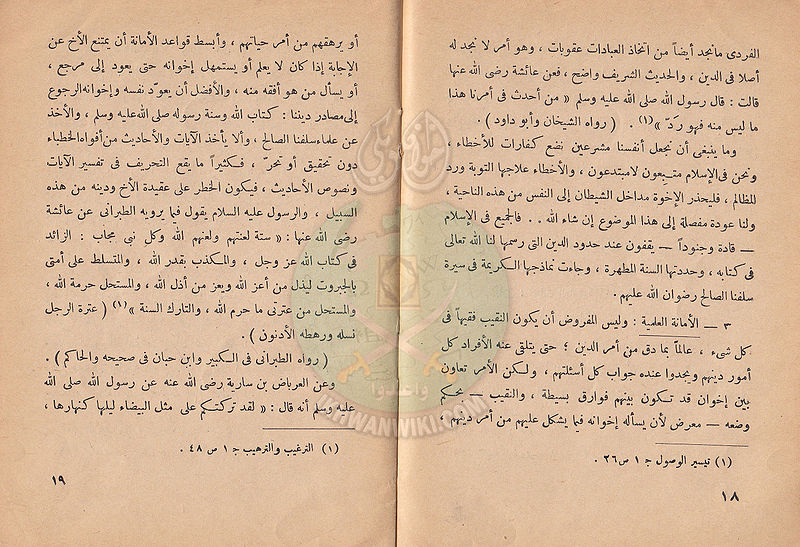 الفردى مانجد أيضاً من اتخاذ العبادات عقوبات ، وهو أمر لا نجد له
أصلا فى الدين ، والحديث الشريف واضح ، فعن عائشة رضى الله عنها
قالت : قال رسول الله صلى الله عليه وسلم « من أحدث فى أمرنا هذا
ما ليس منه فهو ردّ »(١) . ( رواه الشيخان وأبو داود ) .
وما ينبغى أن نجعل أنفسنا مشرعين نضع كفارات للأخطاء ،
ونحن فى الإسلام متبعون لامبتدعون ، والأخطاء علاجها التوبة ورد
المظالم ، فليحذر الإخوة مداخل الشيطان إلى النفس من هذه الناحية ،
ولنا عودة مفصلة إلى هذا الموضوع إن شاء الله . . فالجميع فى الإسلام
— قادة وجنوداً — يقفون عند حدود الدين التى رسمها لنا الله تعالى
فى كتابه ، وحددتها السنة المطهرة ، وجاءت نماذجها الكريمة فى سيرة
سلفنا الصالح رضوان الله عليهم .
٣ — الأمانة العلمية : وليس المفروض أن يكون النقيب فقيهاً فى
كل شىء ، عالماً بما دق من أمر الدين ؛ حتى يتلقى عنه الأفراد كل
أمور دينهم ويجدوا عنده جواب كل أسئلتهم ، ولكن الأمر تعاون
بين إخوان قد تكون بينهم فوارق بسيطة ، والنقيب — بحكم
وضعه — معرض لأن يسأله إخوانه فيما يشكل عليهم من أمر دينهم ،
(١) تيسير الوصول ج ١ ص ٢٦ .
١٨
أو يرهقهم من أمر حياتهم ، وأبسط قواعد الأمانة أن يمتنع الأخ عن
الإجابة إذا كان لا يعلم أو يستمهل إخوانه حتى يعود إلى مرجع ،
أو يسأل من هو أفقه منه ، والأفضل أن يعوّد نفسه وإخوانه الرجوع
إلى مصادر ديننا : كتاب الله وسنة رسوله صلى الله عليه وسلم ، والأخذ
عن علماء سلفنا الصالح ، وألا يأخذ الآيات والأحاديث من أفواه الخطباء
دون تحقيق أو تحرّ ، فكثيراً ما يقع التحريف فى تفسير الآيات
ونصوص الأحاديث ، فيكون الخطر على عقيدة الأخ ودينه من هذه
السبيل ، والرسول عليه السلام يقول فيما يرويه الطبرانى عن عائشة
رضى الله عنها : « ستة لعنتهم ولعنهم الله وكل نبى مجاب : الزائد
فى كتاب الله عز وجل ، والمكذب بقدر الله ، والمتسلط على أمتى
بالجبروت ليذل من أعز الله ويعز من أذل الله ، والمستحل حرمة الله ،
والمستحل من عترتى ما حرم الله ، والتارك السنة »(١) ( عترة الرجل
نسله ورهطه الأدنون ) .
( رواه الطبرانى فى الكبير وابن حبان فى صحيحه والحاكم ) .
وعن العرباض بن سارية رضى الله عنه عن رسول الله صلى الله
عليه وسلم أنه قال : « لقد تركتكم على مثل البيضاء ليلها كنهارها ،
(١) الترغيب والترهيب ج ١ ص ٤٨ .
١٩
وأعدوا
IKHWANWIKI.COM